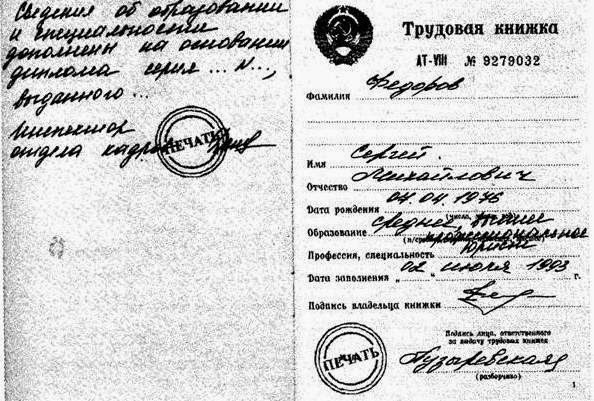 Сведения об образовании
и специальности
дополнены на основании
диплома серия ... N...,
выданного ...
Инспектор
отдела кадров
ПЕЧАТЬ
Трудовая книжка
АТ-VIII № 9279032
Фамилия Федоров
Имя Сергей
Отчество Михайлович
Дата рождения 04.04.1976
(число,
Образование среднее, высшее
профессиональное
Профессия, специальность юрист
Дата заполнения „02“ июля 1993 г.
Подпись владельца книжки
ПЕЧАТЬ
Подпись лица, ответственного
за выдачу трудовых книжек
Пузыревская
(разборчиво)
1